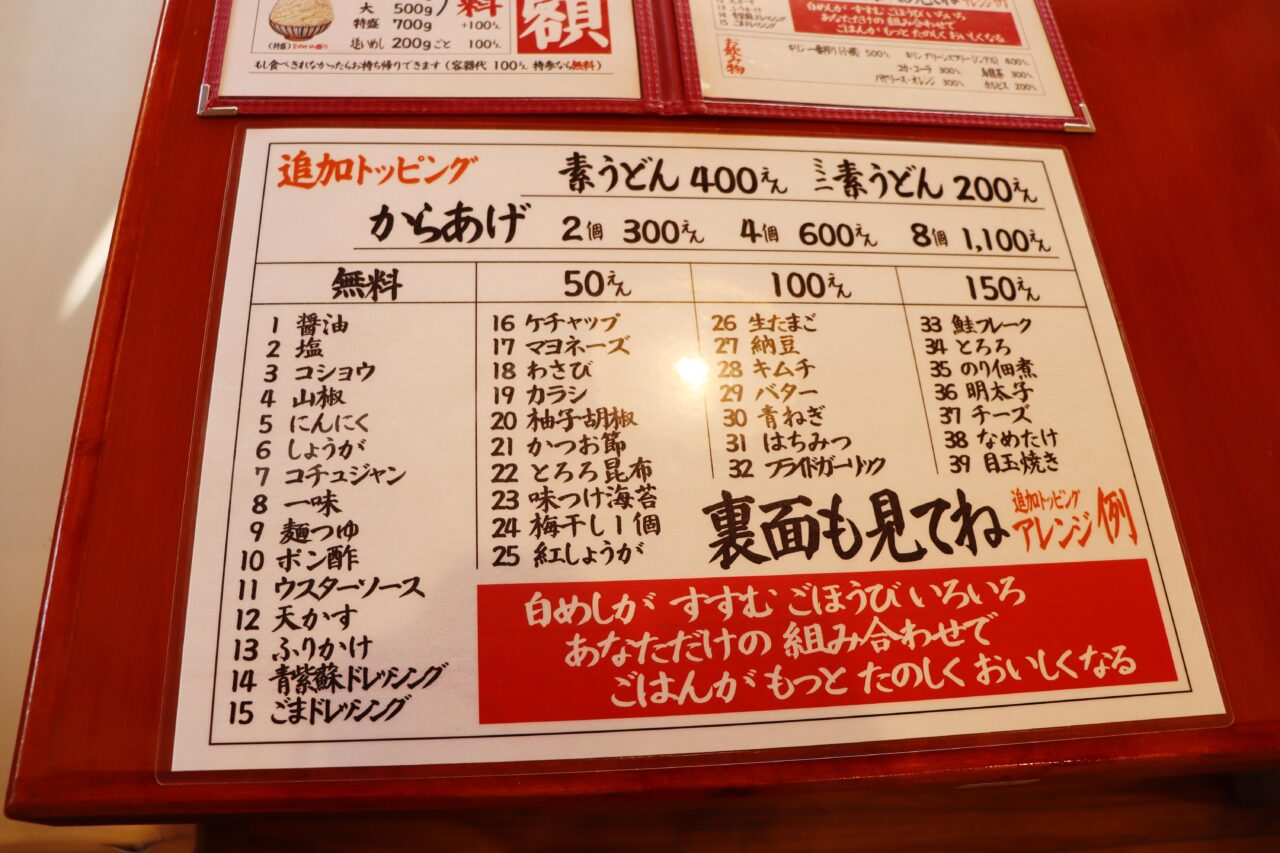 大 500g
料
額
特盛 700g +100えん
追いめし 200gごと 100えん
もし食べきれなかったらお持ち帰りできます(容器代 100えん 持参なら無料)
15 ごまドレッシング
白めしが すすむ ごほうび いろいろ
あなただけの 組み合わせで
ごはんが もっと たのしく おいしくなる
お飲み物
キリン 一番搾り(小瓶) 500えん
キリン グリーンズフリー(ノンアル) 400えん
コカ・コーラ 300えん
烏龍茶 300えん
バヤリース・オレンジ 300えん
カルピス 200えん
追加トッピング
素うどん 400えん ミニ素うどん 200えん
からあげ 2個 300えん 4個 600えん 8個 1,100えん
無料
1 醤油
2 塩
3 コショウ
4 山椒
5 にんにく
6 しょうが
7 コチュジャン
8 一味
9 麺つゆ
10 ポン酢
11 ウスターソース
12 天かす
13 ふりかけ
14 青紫蘇ドレッシング
15 ごまドレッシング
50えん
16 ケチャップ
17 マヨネーズ
18 わさび
19 カラシ
20 柚子胡椒
21 かつお節
22 とろろ昆布
23 味つけ海苔
24 梅干し1個
25 紅しょうが
100えん
26 生たまご
27 納豆
28 キムチ
29 バター
30 青ねぎ
31 はちみつ
32 フライドガーリック
150えん
33 鮭フレーク
34 とろろ
35 のり佃煮
36 明太子
37 チーズ
38 なめたけ
39 目玉焼き
裏面も見てね
追加トッピング
アレンジ例
白めしが すすむ ごほうび いろいろ
あなただけの 組み合わせで
ごはんが もっと たのしく おいしくなる